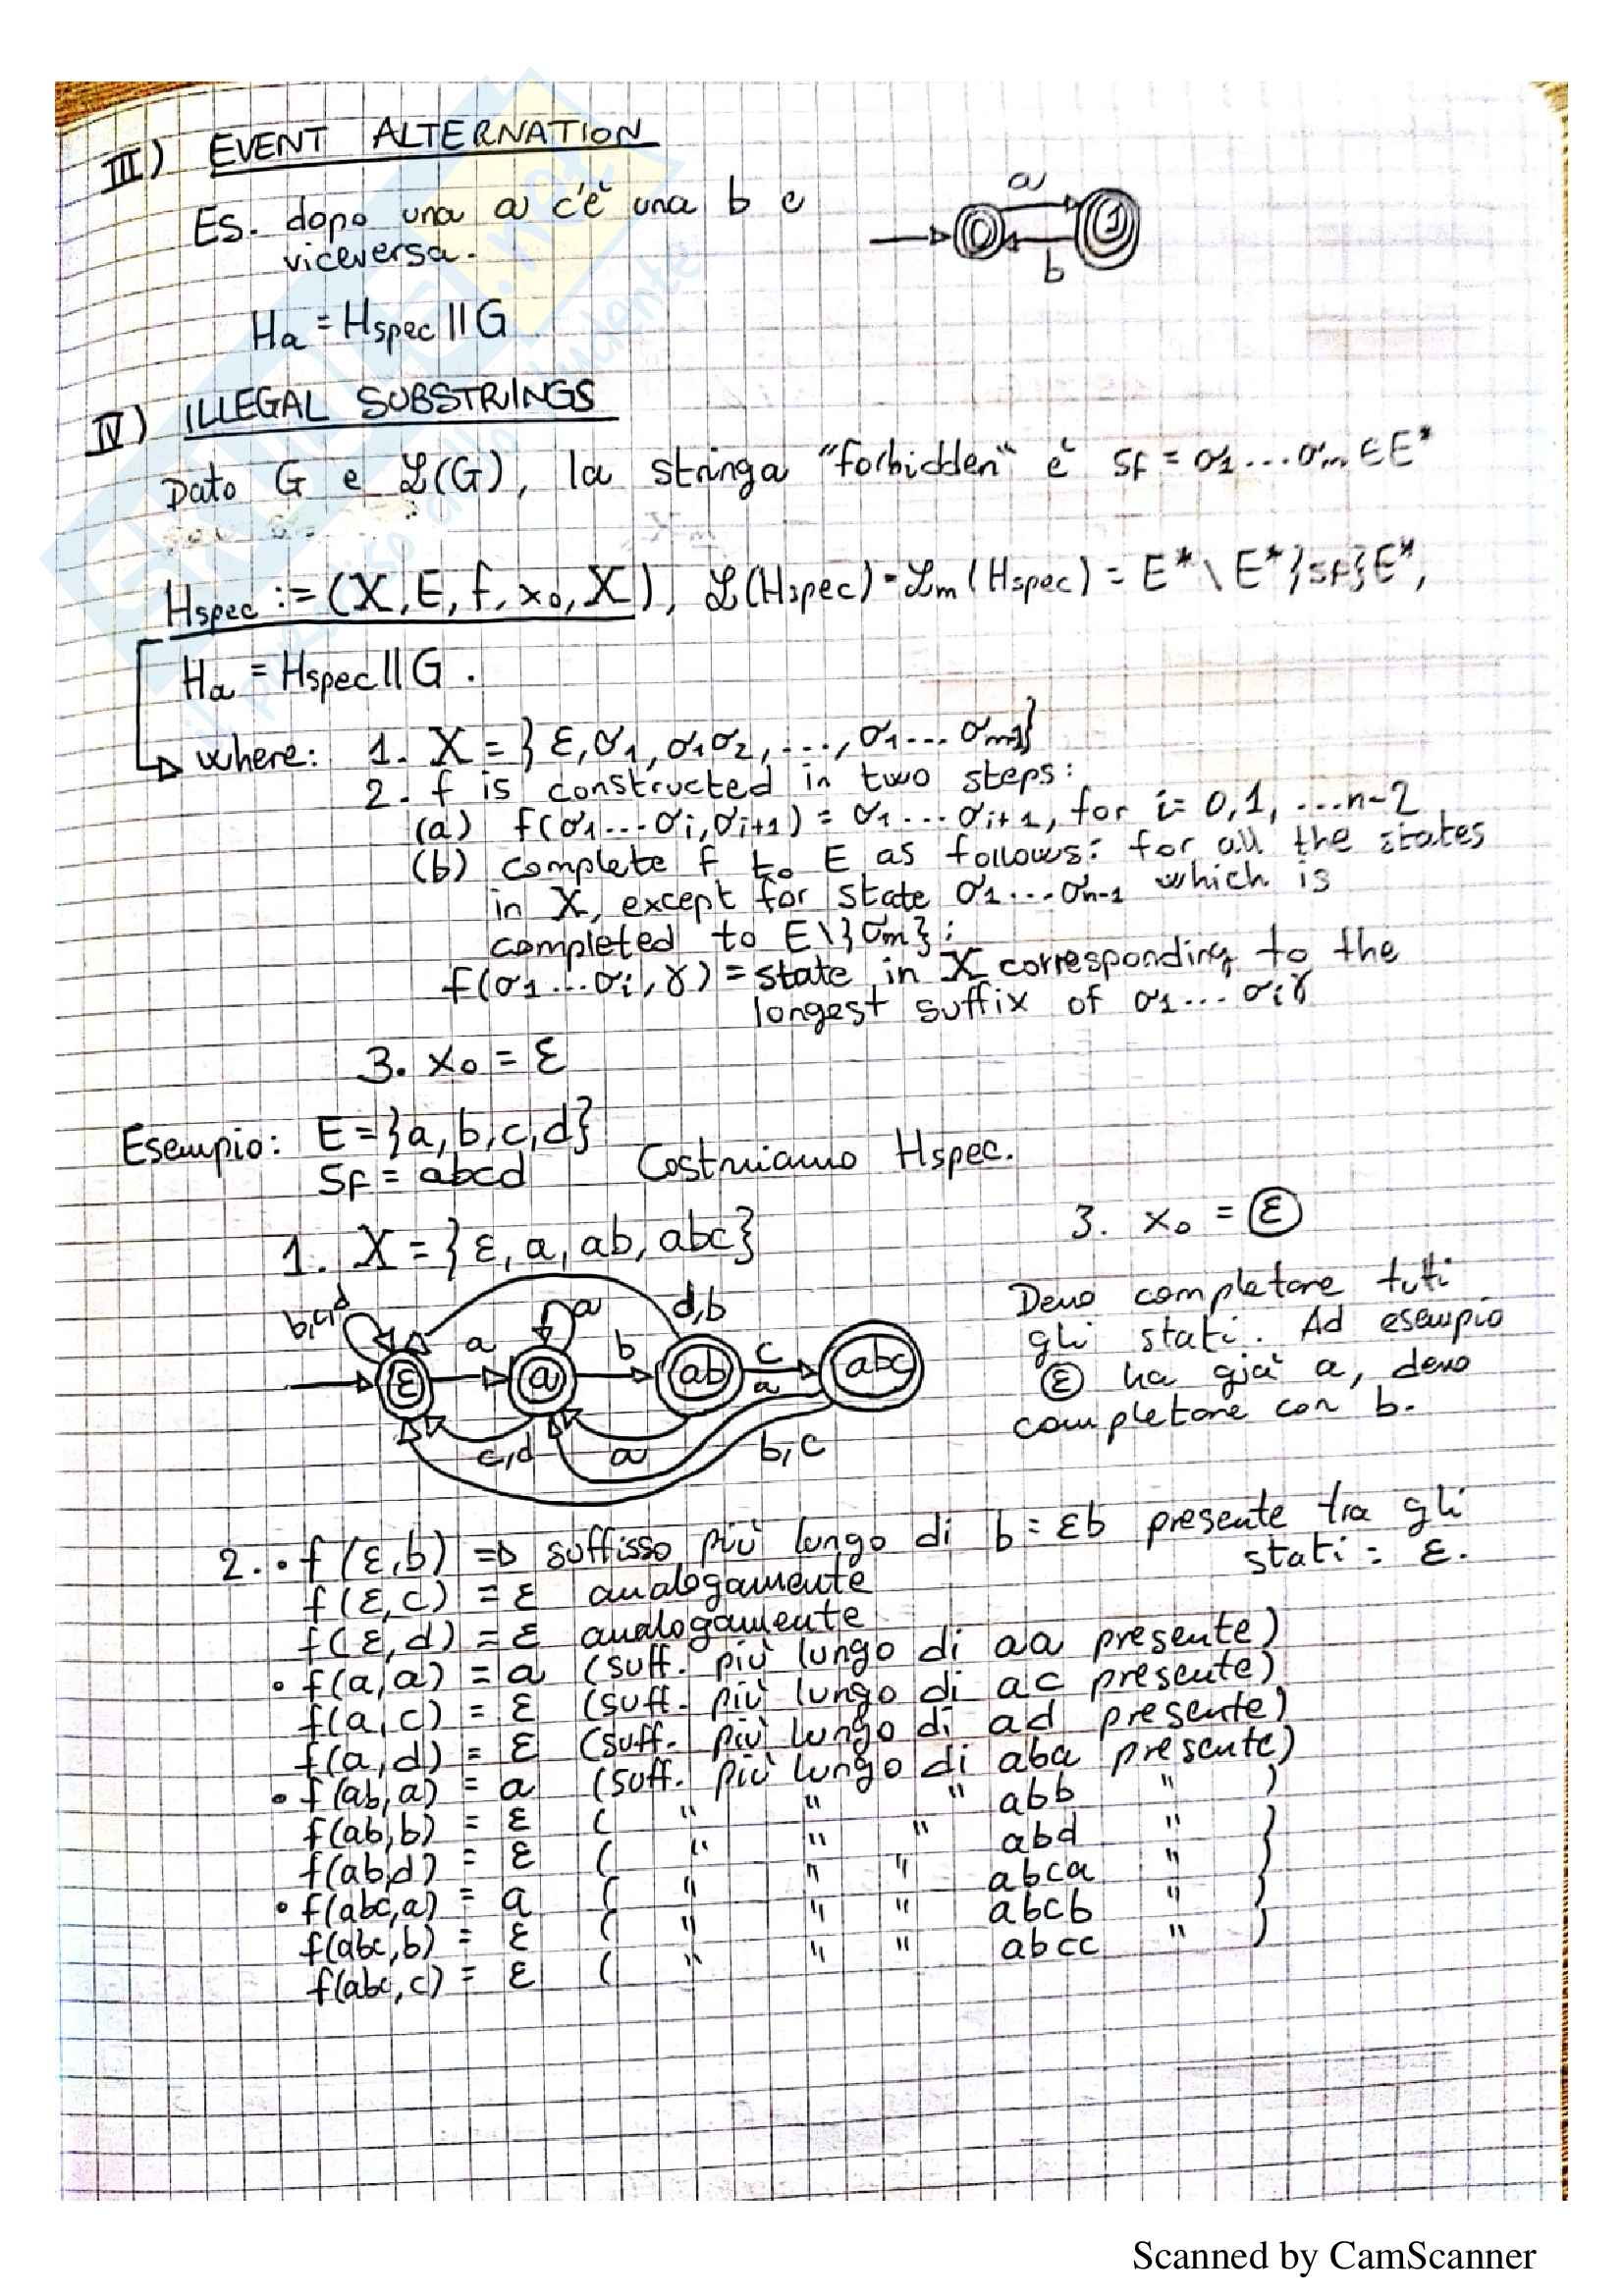 III) EVENT ALTERNATION
Es. dopo una a c'è una b e
viceversa.
a
0 1
b
Ha = Hspec || G
IV) ILLEGAL SUBSTRINGS
Dato G e L(G), la stringa "forbidden" è SF = σ1...σm ∈ E*
Hspec := (X, E, f, x0, X), L(Hspec) = Lm(Hspec) = E* \ E*{SF}E*,
Ha = Hspec || G.
where: 1. X = {ε, σ1, σ1σ2, ..., σ1...σm-1}
2. f is constructed in two steps:
(a) f(σ1...σi, σi+1) = σ1...σi+1, for i = 0,1,...n-2
(b) complete f to E as follows: for all the states
in X, except for state σ1...σn-1 which is
completed to E\{σm}:
f(σ1...σi, γ) = state in X corresponding to the
longest suffix of σ1...σiγ
3. x0 = ε
Esempio: E = {a, b, c, d}
SF = abcd Costruiamo Hspec.
1. X = {ε, a, ab, abc}
3. x0 = ε
b,c,d a a b d,b c a
ε a ab abc
c,d a b,c
Devo completare tutti
gli stati. Ad esempio
ε ha già a, devo
completare con b.
2. • f(ε,b) => suffisso più lungo di b = εb presente tra gli
stati = ε.
f(ε,c) = ε analogamente
f(ε,d) = ε analogamente
• f(a,a) = a (suff. più lungo di aa presente)
f(a,c) = ε (suff. più lungo di ac presente)
f(a,d) = ε (suff. più lungo di ad presente)
• f(ab,a) = a (suff. più lungo di aba presente)
f(ab,b) = ε ( " " " abb " )
f(ab,d) = ε ( " " " abd " )
• f(abc,a) = a ( " " " abca " )
f(abc,b) = ε ( " " " abcb " )
f(abc,c) = ε ( " " " abcc " )
Scanned by CamScanner